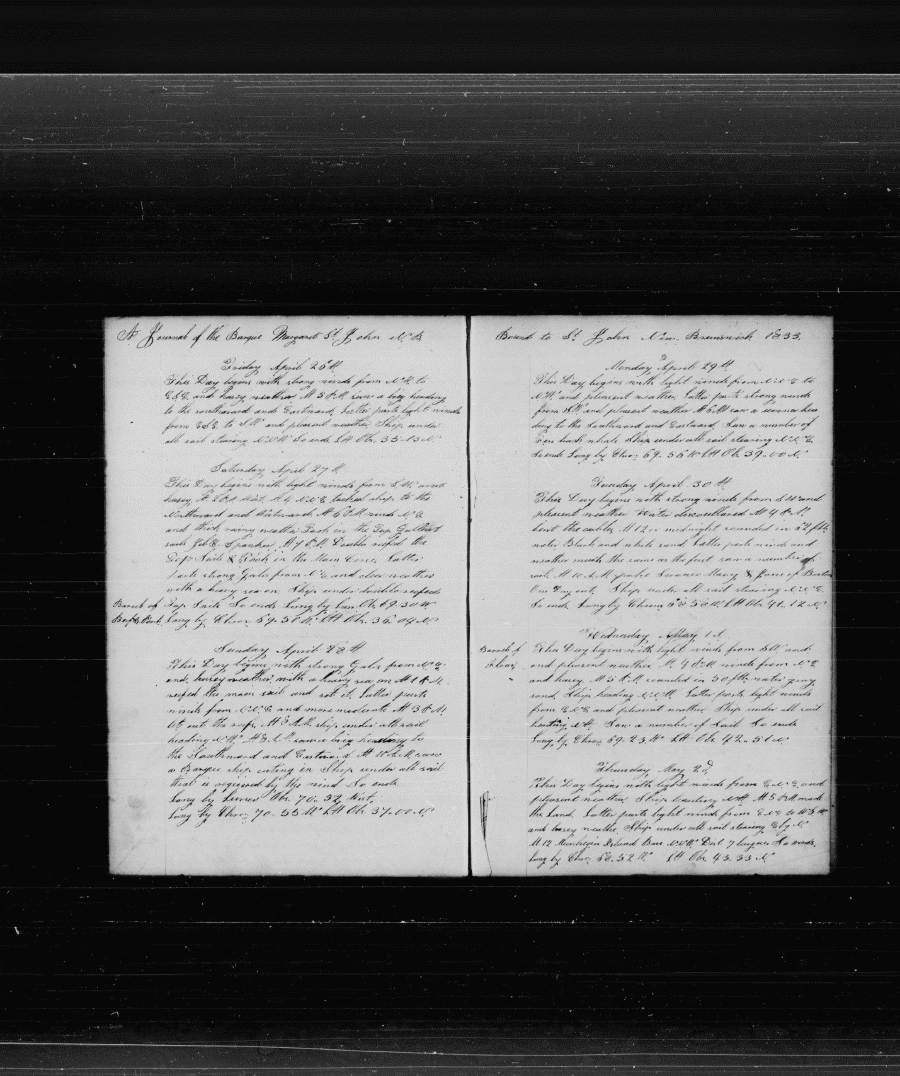 A Journal of the Barque Margaret St. John N.B
Friday April 26th
This Day begins with strong winds from N.E to
E.S.E. and hazey weather At 5 P.M. saw a brig heading
to the southward and Eastward, Latter parts light winds
from E.S.E to S.W. and pleasent weather, Ship under
all sail stearing N.N.W. So ends Lt Ob. 33-13 N
Saturday April 27th
This Day begins with light winds from S.W. and
hazey At 2 P.M. tacked ship to the
Northward and Westward At 6 P.M. winds N.E
and thick rainy weather Took in the Top Gallant
sails Jib & Spanker, At 7 P.M. Double reefed the
Top Sails & Took in the Main Corse, Latter
parts strong Gales from N.E and clear weather
with a heavy sea on Ship under double reefed
Top Sails So ends Long by Ob 69.30 W
Long by Chron 69-51 W. Lt Ob. 36-04 N
Sunday April 28th
This Day begins with strong Gales from N.E
and hazey weather with a heavy sea on At 1 P.M.
reefed the main sail and set it, Latter parts
winds from N.N.E. and more moderate At 3 A.M.
let out the reefs, At 5 A.M. ship under all sail
heading N.W. At 8 A.M. saw a brig heading to
the Southward and Eastward, At 10 A.M. saw
a Barque ship cuting in Ship under all sail
that is required by the wind So ends
Long by Lunar Obr. 70-32 West,
Long by Chron. 70-55 W Lt Ob. 37-00 N
Bound to St. John New Brunswick 1833.
Monday April 29th
This Day begins with light winds from N.N.E to
N.W. and pleasent weather, Latter parts strong winds
from S.W. and pleasent weather At 6 M saw a scooner hea
ding to the Southward and Eastward, Saw a number of
Fin back whale Ship under all sail stearing N.N.E.
So ends Long by Chron. 69-56 W Lt Ob. 39-00 N.
Tuesday April 30th
This Day begins with strong winds from S.W and
pleasent weather Water discoulloured At 4 P.M.
bent the cables, At 12 or midnight sounded in 52 fths
water, Black and white sand Latter parts winds and
weather much the same as the first saw a number of
sail At 10 A.M. spoke Scooner Mary & Jane of Boston
One Day out, Ship under all sail stearing N.N.E.
So ends Long by Chron 68-58 W Lt Ob. 41-12 N
Wednesday May 1st
This Day begins with light winds from S.W. and
and pleasent weather, At 4 P.M. winds from N.E
and hazey At 5 P.M. sounded in 50 fths water gray
sand, Ship heading N.N.W. Latter parts light winds
from E.N.E and pleasent weather Ship under all sail
heading N. Saw a number of Sail So ends
Long by Chron. 69-23 W. Lt Ob. 42-51 N
Thursday May 2d
This Day begins with light winds from E.N.E. and
pleasent weather, Ship heading N. At 5 P.M. made
the Land, Latter parts light winds from E.N.E to W.S.W
and hazey weather, Ship under all sail stearing E by N.
At 12 Island Bore N.N.W. Dist 7 leagues So ends
Long by Chro. 68-52 W Lt Ob. 43-33 N